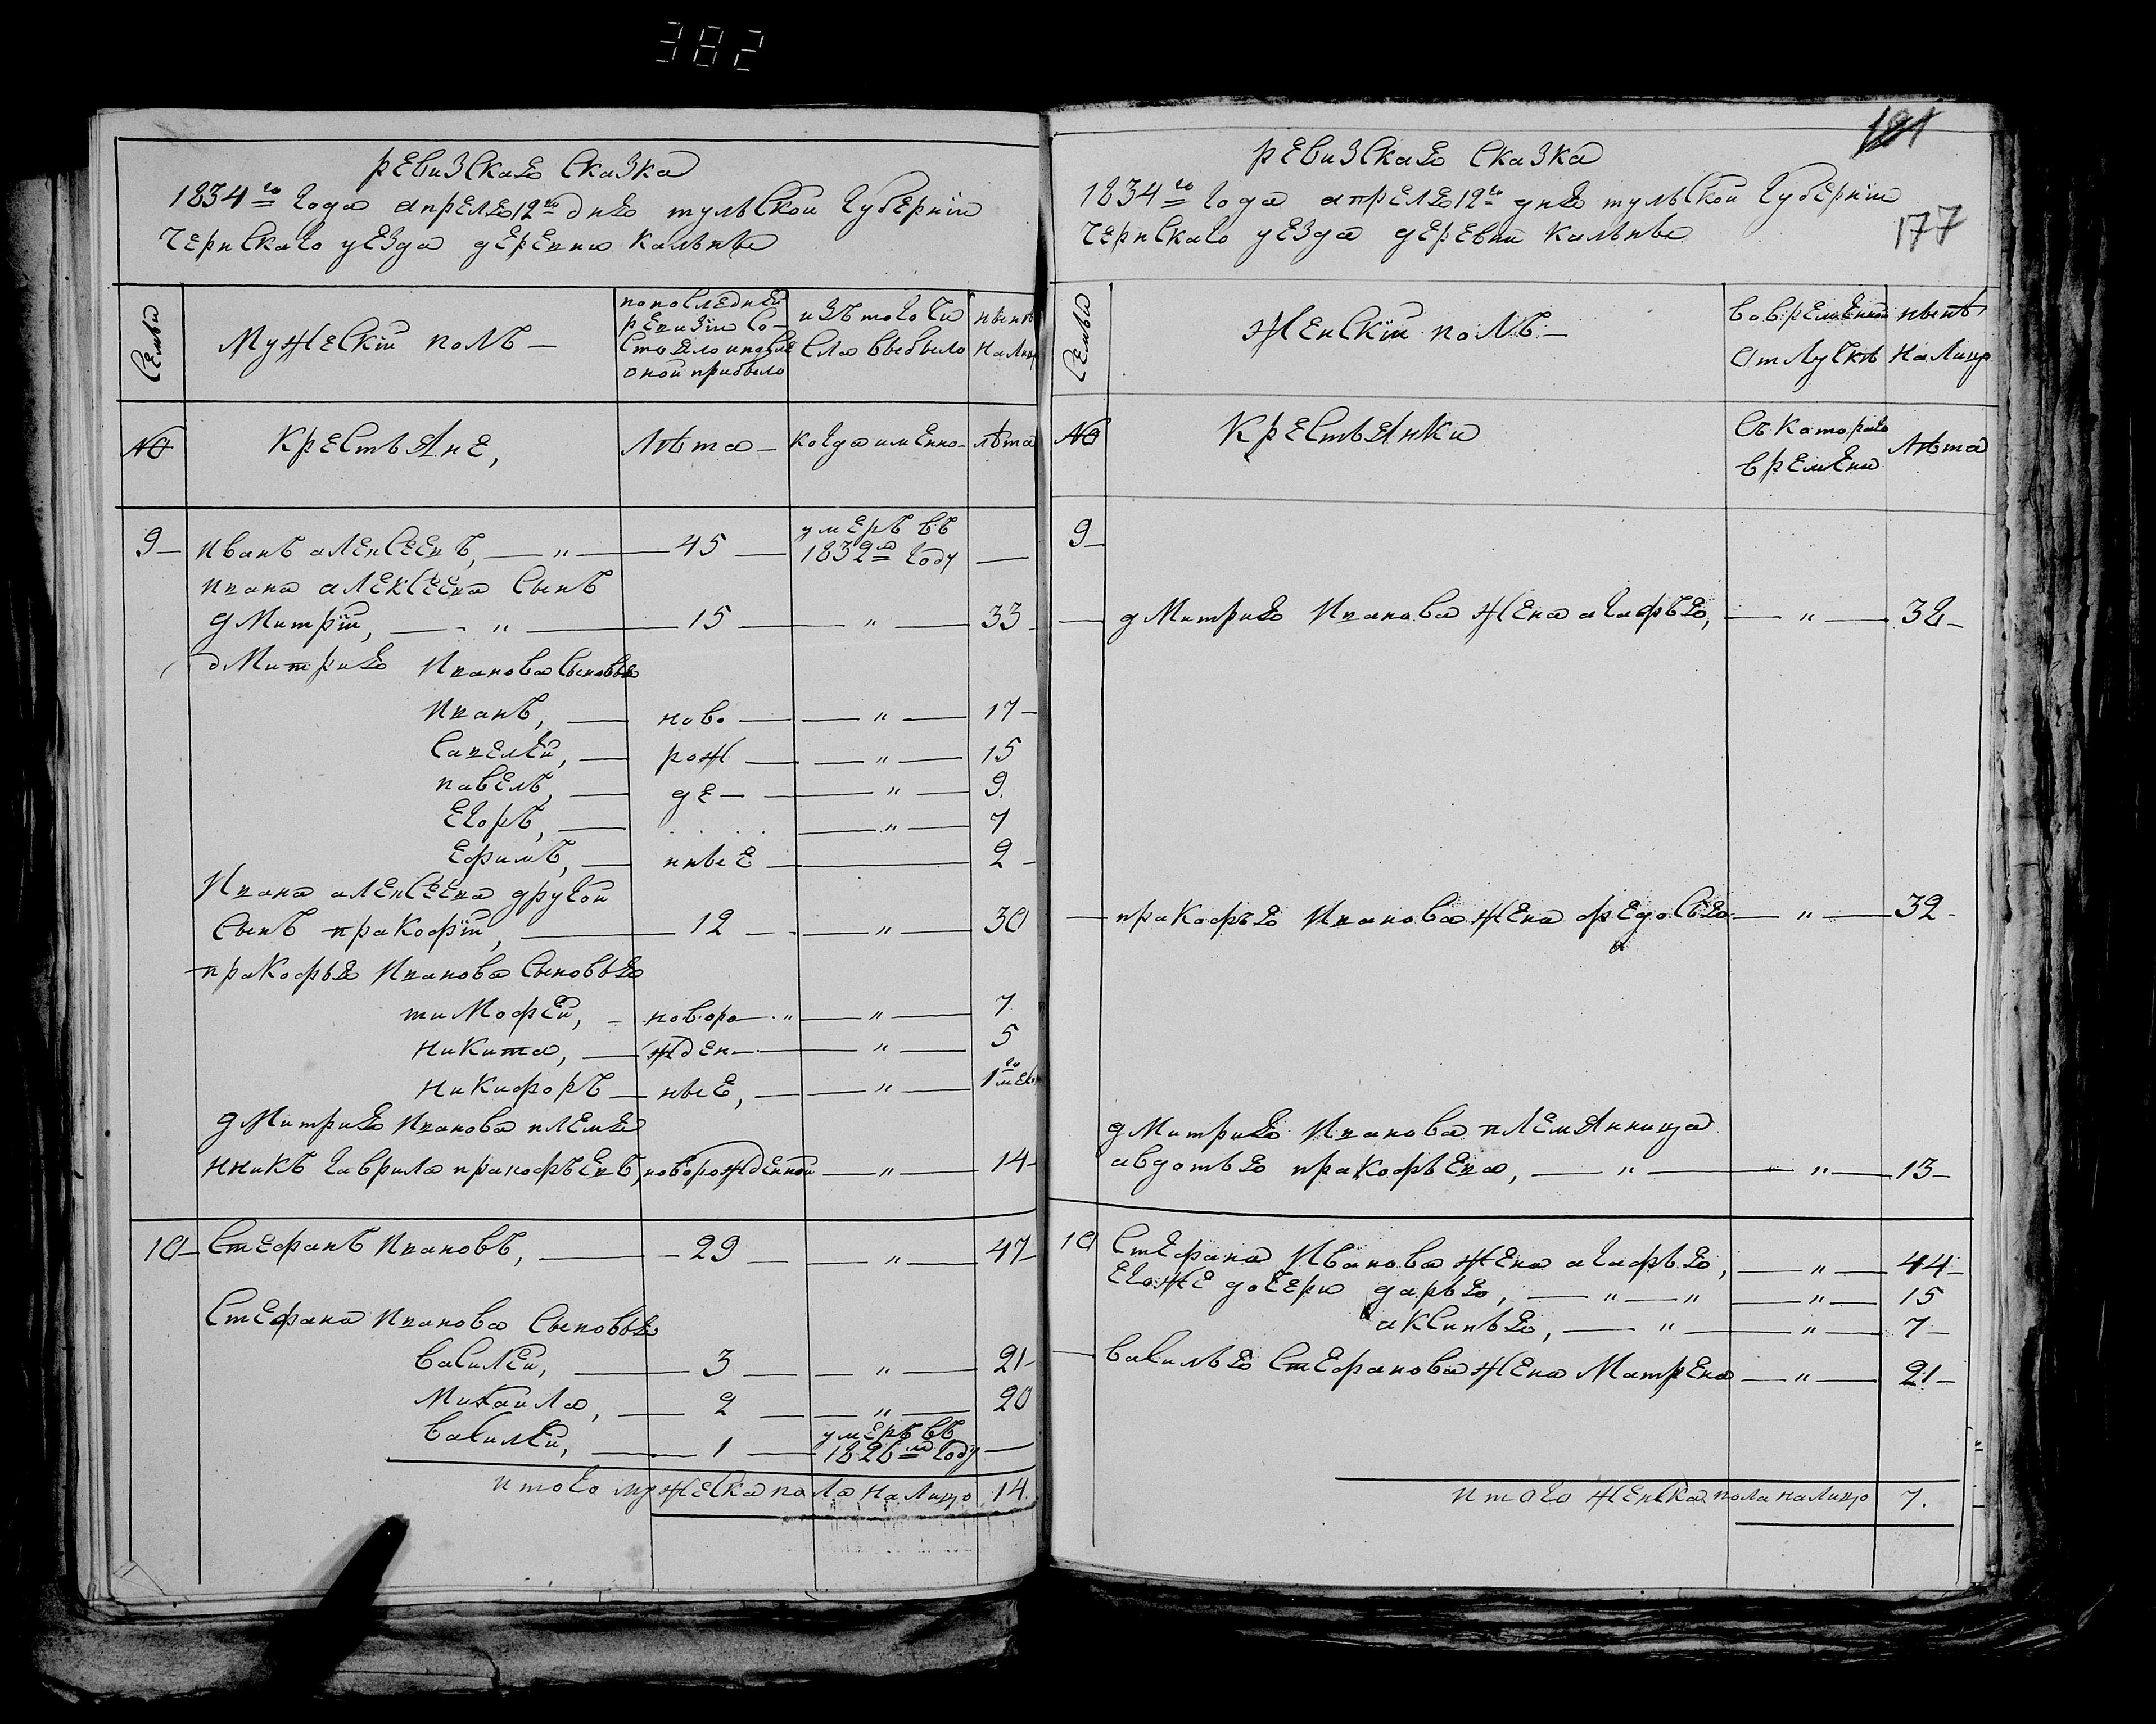 382
ревизская сказка
1834го года апреля 12го дня тульской губернии
чернскаго уезда деревни кальны
Семьи
Мужескій полъ
по последней
ревизіи со-
стояло и после
оной прибыло
изъ того чи
сла выбыло
ныне
на лицо
№
крестьяне,
лѣта
когда именно
лѣта
9 Иванъ алексеевъ, " 45 умеръ въ 1832м году
Ивана алексеева сынъ
дмитрій, " 15 " 33
дмитрия Иванова сыновья
Иванъ, ново " 17
Савелей, рож " 15
павелъ, де " 9
Егоръ, " 7
Ефимъ, нные 2
Ивана алексеева другой
сынъ пракофій, 12 " 30
пракофья Иванова сыновья
тимофей, новоро " " 7
никита, жден " 5
никифоръ ные, " 1го мес
дмитрия Иванова племя
нникъ гаврила пракофьевъ, новорожденной " 14
10 Стефанъ Ивановъ, 29 " 47
Стефана Иванова сыновья
василей, 3 " 21
михаила, 2 " 20
василей, 1 умеръ въ 1826м году
итого мужеска пола на лицо 14.
177
ревизская сказка
1834го года апреля 12го дня тульской губерніи
чернскаго уезда деревни кальны
Семьи
женскій полъ
во временной
отлучкѣ
ныне
на лицо
№
крестьянки
съ котораго
времени
лѣта
9
дмитрия Иванова жена агафья, " 32
пракофья Иванова жена федосья " 32
дмитрия Иванова племянница
авдотья пракофьева, " " 13
10 Стефана Иванова жена агафья, " 44
его же дочери дарья, " " " 15
аксинья, " " 7
василья Стефанова жена Матрена " 21
итого женска пола на лицо 7.